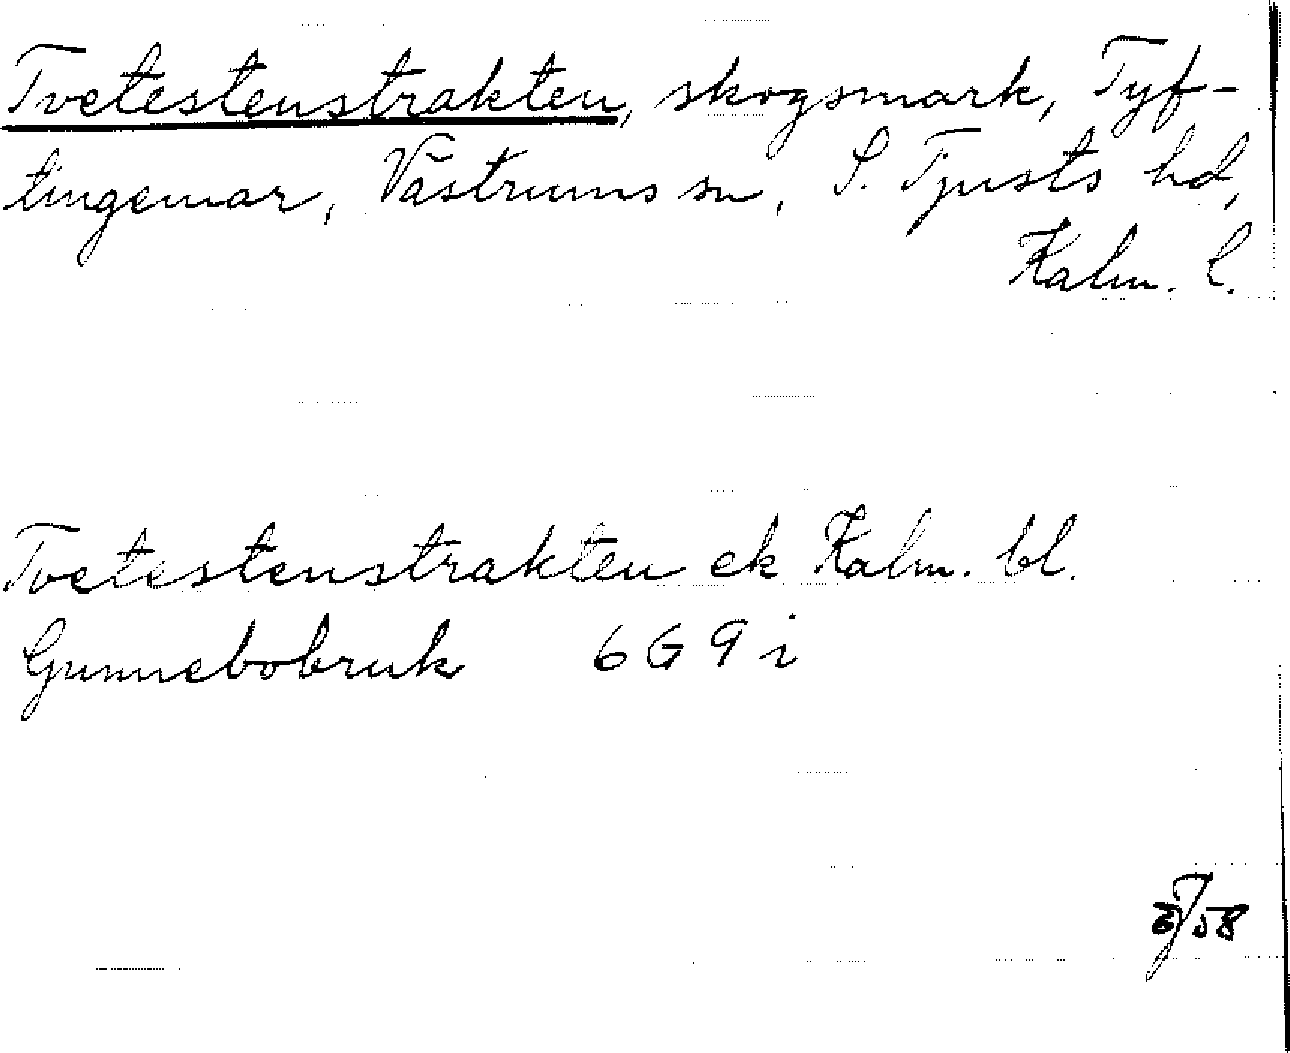 Tvetestenstrakten, skogsmark, Tyf-
tingemar, Västrums sn, S. Tjusts hd,
Kalm. l.
Tvetestenstrakten ek Kalm. bl.
Gunnebobruk 6 G 9 i